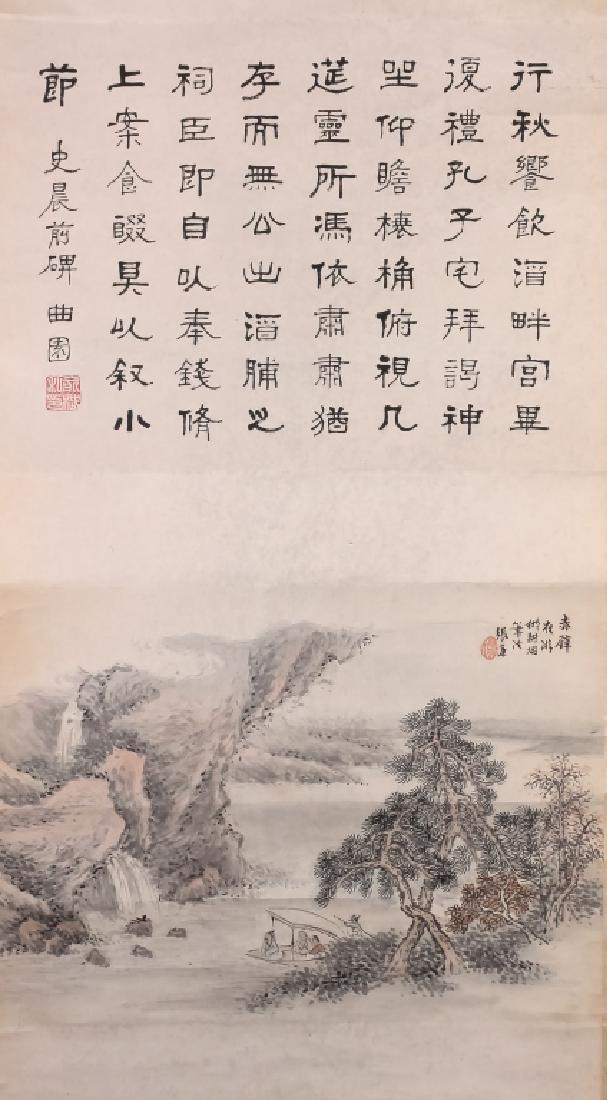 行秋饗飲酒畔宮畢
復禮孔子宅拜謁神
坐仰瞻榱桷俯視几
筵靈所馮依肅肅猶
存而無公出酒脯之
祠臣即自以奉錢脩
上案食醊具以叙小
節
史晨前碑 曲園
赤壁
夜游
耕烟
筆法
張